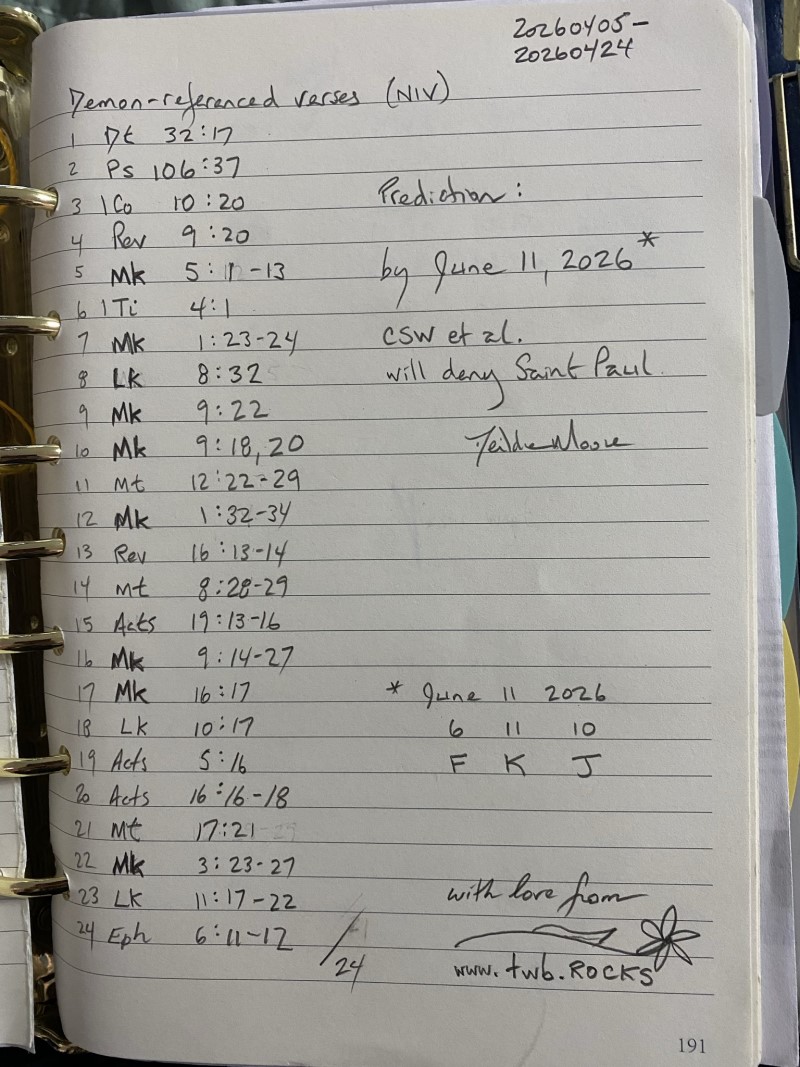 20260405-
20260424
Demon-referenced verses (NIV)
1 Dt 32:17
2 Ps 106:37
3 1 Co 10:20
4 Rev 9:20
5 Mk 5:11-13
6 1 Ti 4:1
7 Mk 1:23-24
8 Lk 8:32
9 Mk 9:22
10 Mk 9:18, 20
11 Mt 12:22-29
12 Mk 1:32-34
13 Rev 16:13-14
14 Mt 8:28-29
15 Acts 19:13-16
16 Mk 9:14-27
17 Mk 16:17
18 Lk 10:17
19 Acts 5:16
20 Acts 16:16-18
21 Mt 17:21
22 Mk 3:23-27
23 Lk 11:17-22
24 Eph 6:11-12
/24
Prediction:
by June 11, 2026*
CSW et al.
will deny Saint Paul.
Moore
* June 11 2026
6 11 10
F K J
with love from
www.twb.ROCKS
191